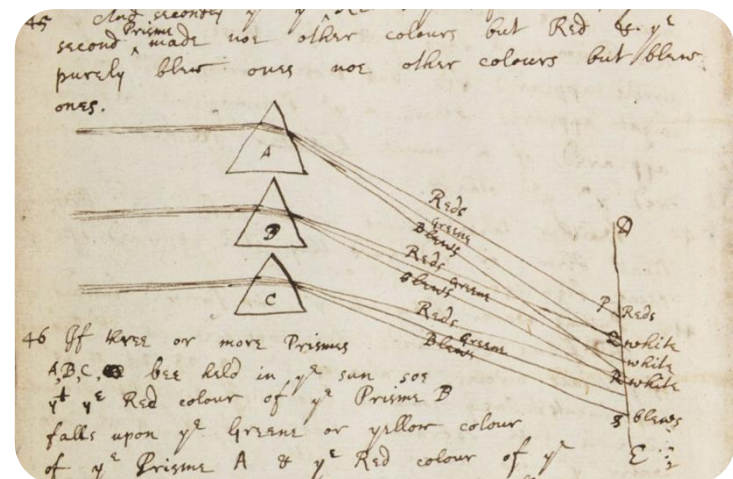 45
second Prisme made noe other colours but Red &. yᵉ
purely blew ones noe other colours but blew
ones.
A
B
C
Reds
Greene
Blews
Reds
Greene
blews
Reds
Greene
Blews
D
P Reds
Q white
white
R white
S blews
E
46 If three or more Prismes
A,B,C, bee held in yᵉ sun soe
yᵗ yᵉ Red colour of yᵉ Prisme B
falls upon yᵉ Greene or yellow colour
of yᵉ Prisme A & yᵉ Red colour of yᵉ